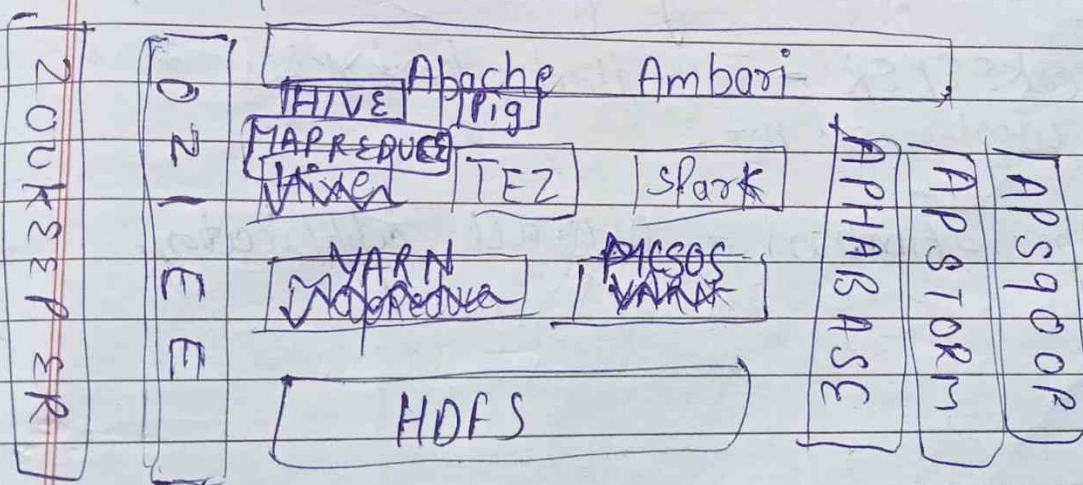 ZOUKEEPER
OZIEE
Apache Ambari
HIVE Pig
MAPREDUCE
TEZ Spark
YARN MESOS
HDFS
APHABASE
APSTORM
APSQOOP